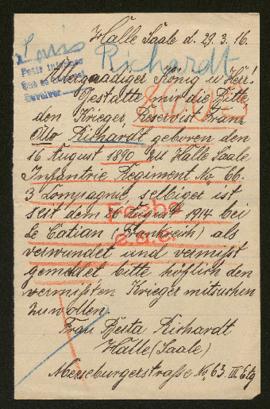 Halle Saale d. 29. 3. 16.
Richardt
Allergnädiger König u. Herr!
Gestatte mir die Bitte
den Krieger, Reservist
Otto Richardt geboren den
16 August 1890, zu Halle Saale
Infantrie Regiment No 66.
3 Compagnie, selbiger ist
seit dem 26 August 1914 bei
Le Catian (Frankreich) als
verwundet und vermißt
gemeldet bitte höflich den
vermißten Krieger mitsuchen
zuwollen.
Frau Berta Richardt
Halle (Saale)
Merseburgerstraße No 63. III Etg